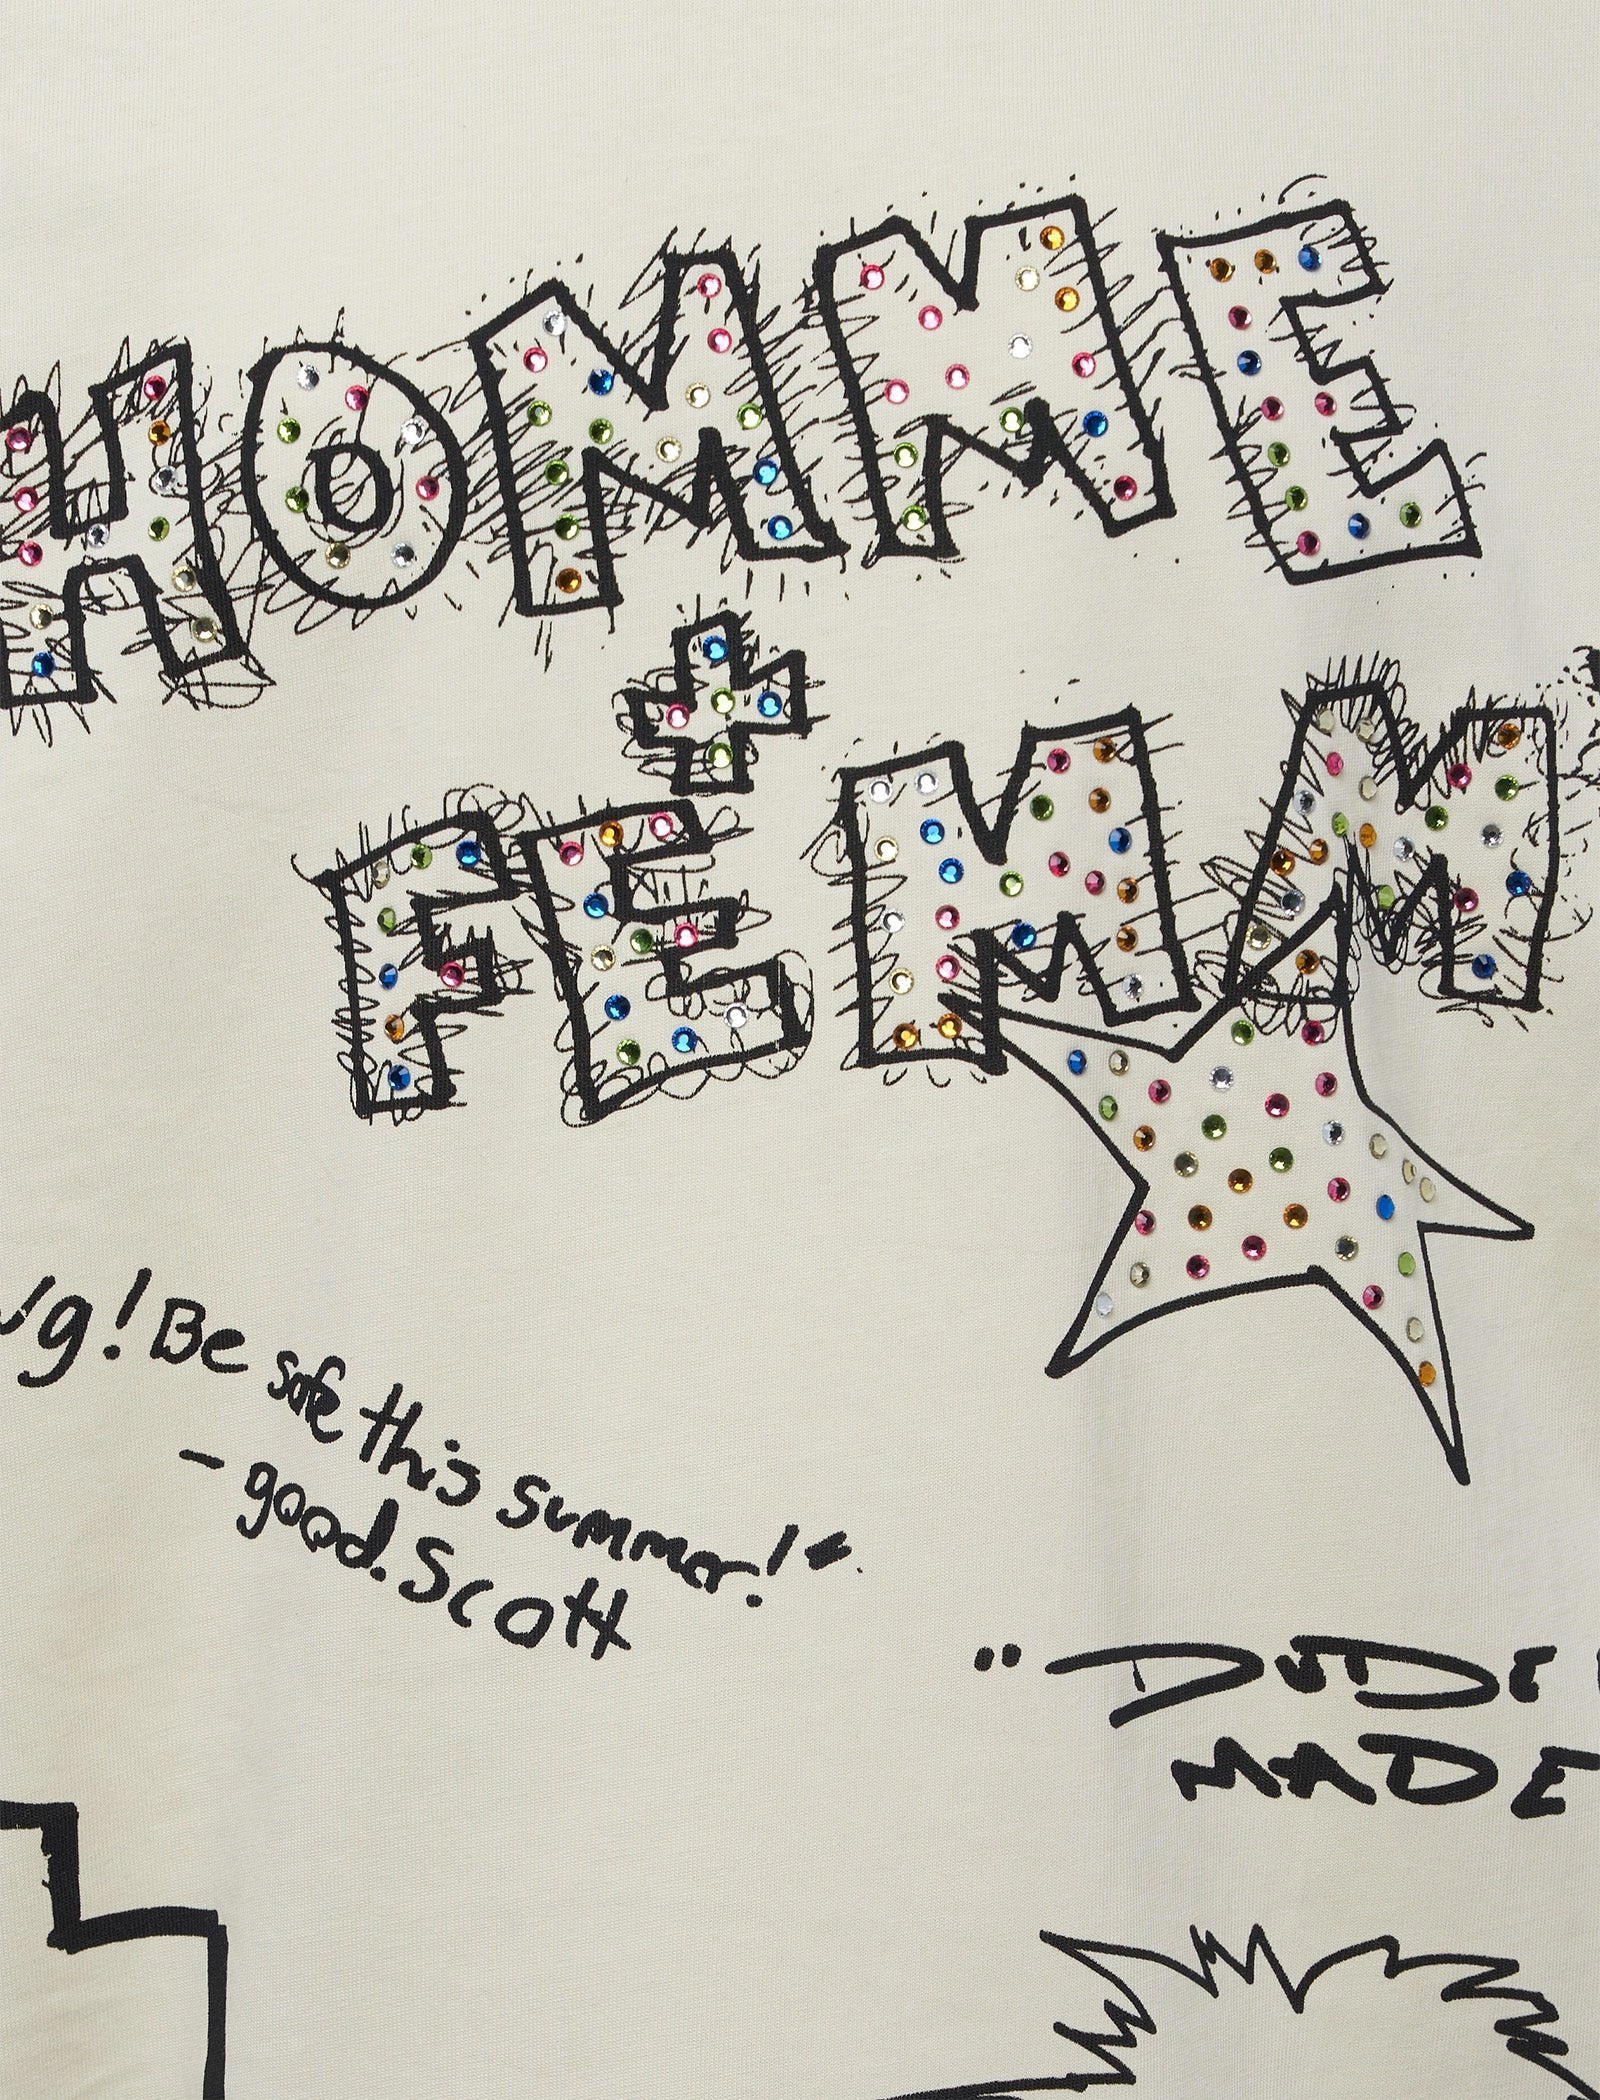 HOMME
+
FEMM
g! Be safe this summer!"
- good. Scott
"DUDE
MADE